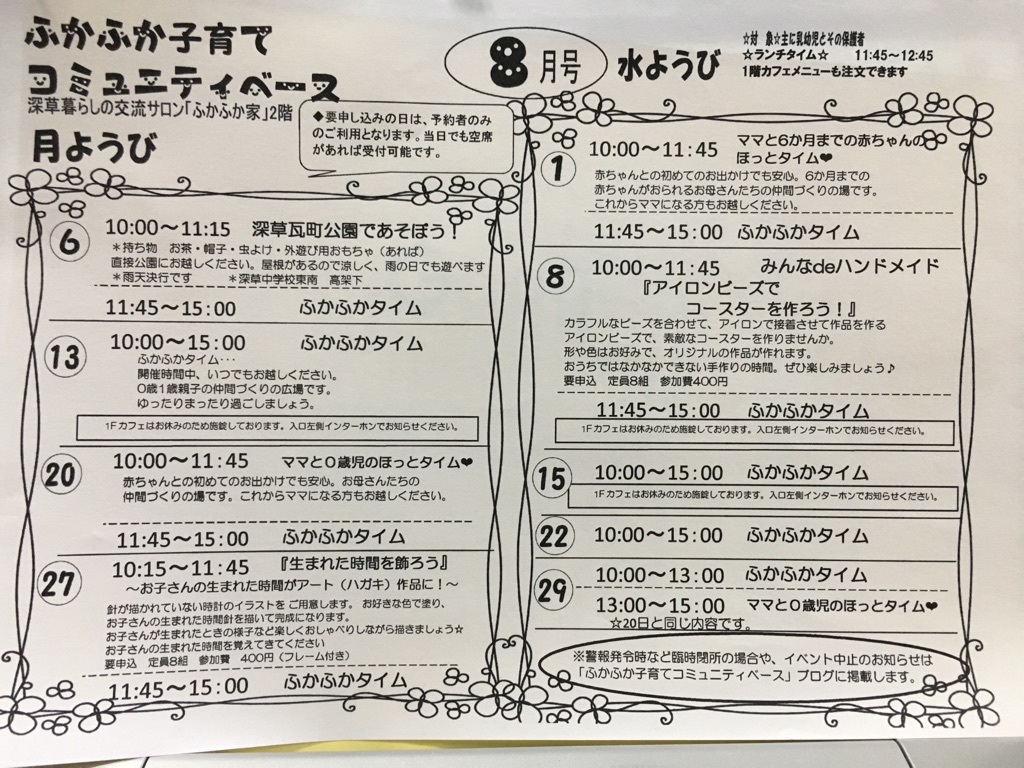 ふかふか子育て
コミュニティベース
深草暮らしの交流サロン「ふかふか家」2階
月ようび
◆要申し込みの日は、予約者のみ
のご利用となります。当日でも空席
があれば受付可能です。
8月号
水ようび
☆対　象☆主に乳幼児とその保護者
☆ランチタイム☆　11:45～12:45
1階カフェメニューも注文できます
6
10:00～11:15　深草瓦町公園であそぼう！
＊持ち物　お茶・帽子・虫よけ・外遊び用おもちゃ（あれば）
直接公園にお越しください。屋根があるので涼しく、雨の日でも遊べます
＊雨天決行です　＊深草中学校東南　高架下
11:45～15:00　ふかふかタイム
13
10:00～15:00　ふかふかタイム
ふかふかタイム･･･
開催時間中、いつでもお越しください。
0歳1歳親子の仲間づくりの広場です。
ゆったりまったり過ごしましょう。
1Fカフェはお休みのため施錠しております。入口左側インターホンでお知らせください。
20
10:00～11:45　ママと0歳児のほっとタイム❤
赤ちゃんとの初めてのお出かけでも安心。お母さんたちの
仲間づくりの場です。これからママになる方もお越しください。
11:45～15:00　ふかふかタイム
27
10:15～11:45　『生まれた時間を飾ろう』
～お子さんの生まれた時間がアート（ハガキ）作品に！～
針が描かれていない時計のイラストを ご用意します。 お好きな色で塗り、
お子さんの生まれた時間針を描いて完成になります。
お子さんが生まれたときの様子など楽しくおしゃべりしながら描きましょう☆
お子さんの生まれた時間を覚えてきてください
要申込　定員8組　参加費　400円（フレーム付き）
11:45～15:00　ふかふかタイム
1
10:00～11:45　ママと6か月までの赤ちゃんの
ほっとタイム❤
赤ちゃんとの初めてのお出かけでも安心。6か月までの
赤ちゃんがおられるお母さんたちの仲間づくりの場です。
これからママになる方もお越しください。
11:45～15:00　ふかふかタイム
8
10:00～11:45　みんなdeハンドメイド
『アイロンビーズで
コースターを作ろう！』
カラフルなビーズを合わせて、アイロンで接着させて作品を作る
アイロンビーズで、素敵なコースターを作りませんか。
形や色はお好みで、オリジナルの作品が作れます。
おうちではなかなかできない手作りの時間。ぜひ楽しみましょう♪
要申込　定員8組　参加費400円
11:45～15:00　ふかふかタイム
1Fカフェはお休みのため施錠しております。入口左側インターホンでお知らせください。
15
10:00～15:00　ふかふかタイム
1Fカフェはお休みのため施錠しております。入口左側インターホンでお知らせください。
22
10:00～15:00　ふかふかタイム
29
10:00～13:00　ふかふかタイム
13:00～15:00　ママと0歳児のほっとタイム❤
☆20日と同じ内容です。
※警報発令時など臨時閉所の場合や、イベント中止のお知らせは
「ふかふか子育てコミュニティベース」ブログに掲載します。